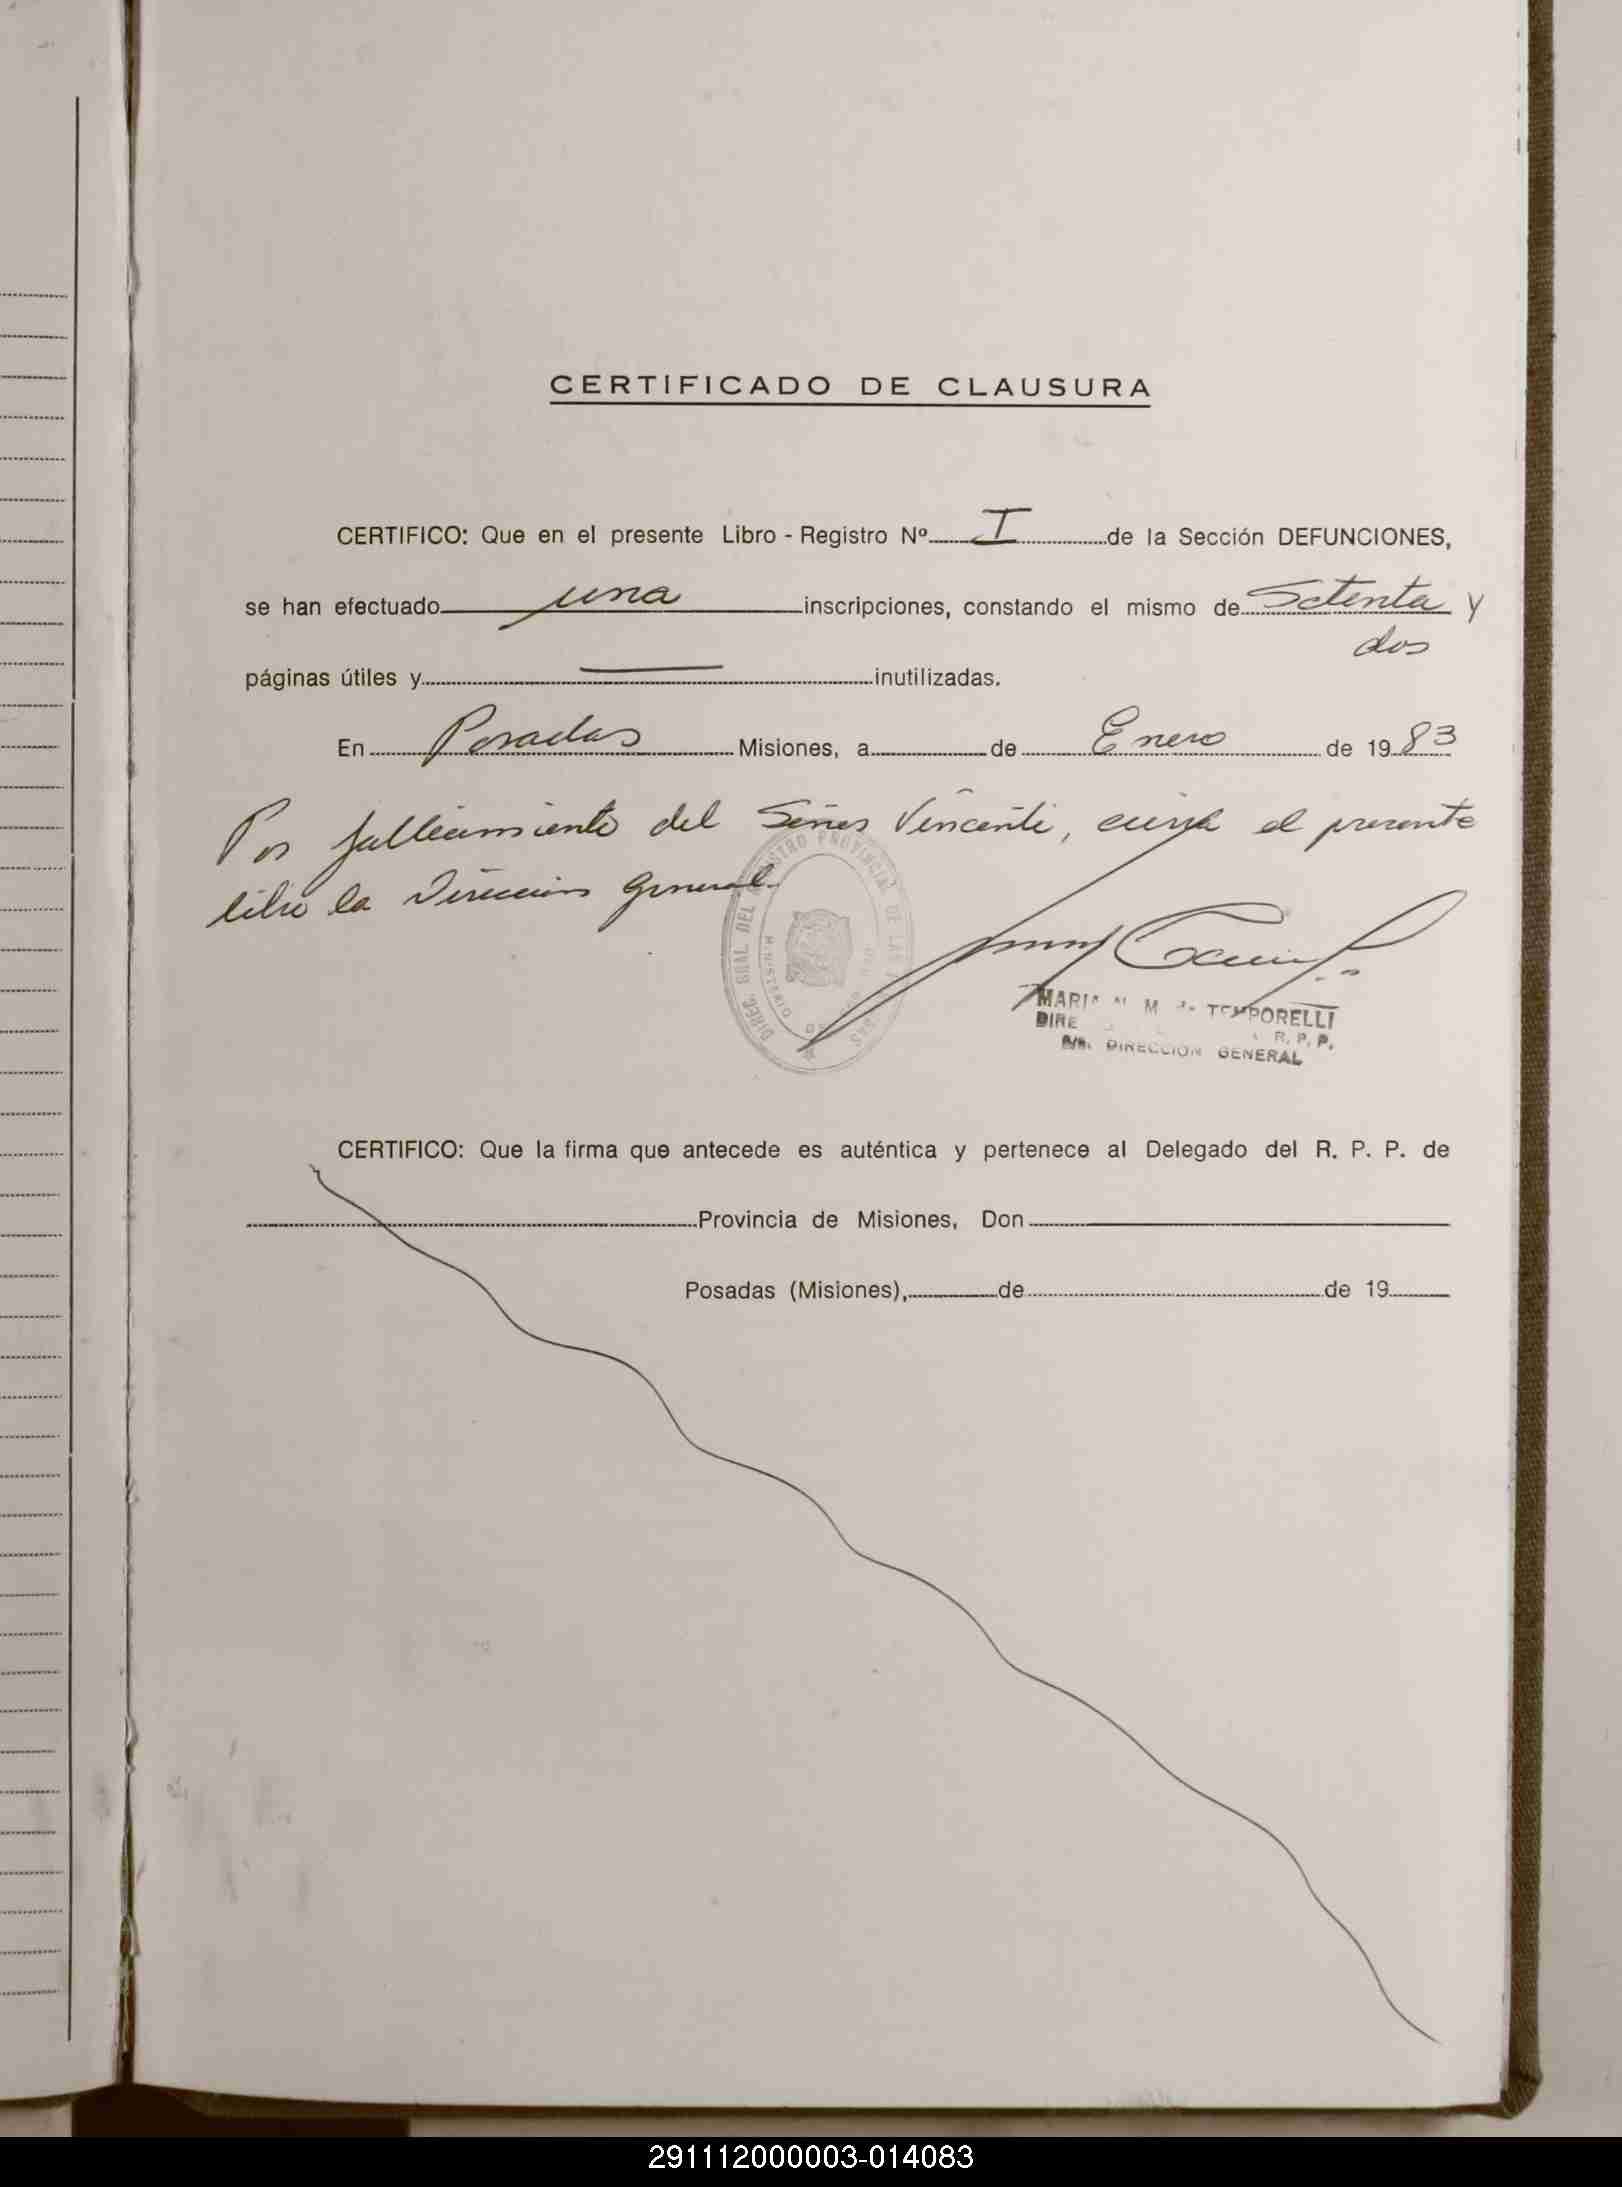 CERTIFICADO DE CLAUSURA
CERTIFICO: Que en el presente Libro - Registro Nº I de la Sección DEFUNCIONES,
se han efectuado una inscripciones, constando el mismo de Setenta y
dos
páginas útiles y — inutilizadas.
En Posadas Misiones, a de Enero de 1983
Por fallecimiento del Señor Vincenti, cierra el presente
libro la Dirección General.
DIREC. GRAL DEL REGISTRO PROVINCIAL DE LAS
MARIA M. de TEMPORELLI
DIRE R. P. P.
DIRECCION GENERAL
CERTIFICO: Que la firma que antecede es auténtica y pertenece al Delegado del R. P. P. de
Provincia de Misiones, Don
Posadas (Misiones), de de 19
291112000003-014083